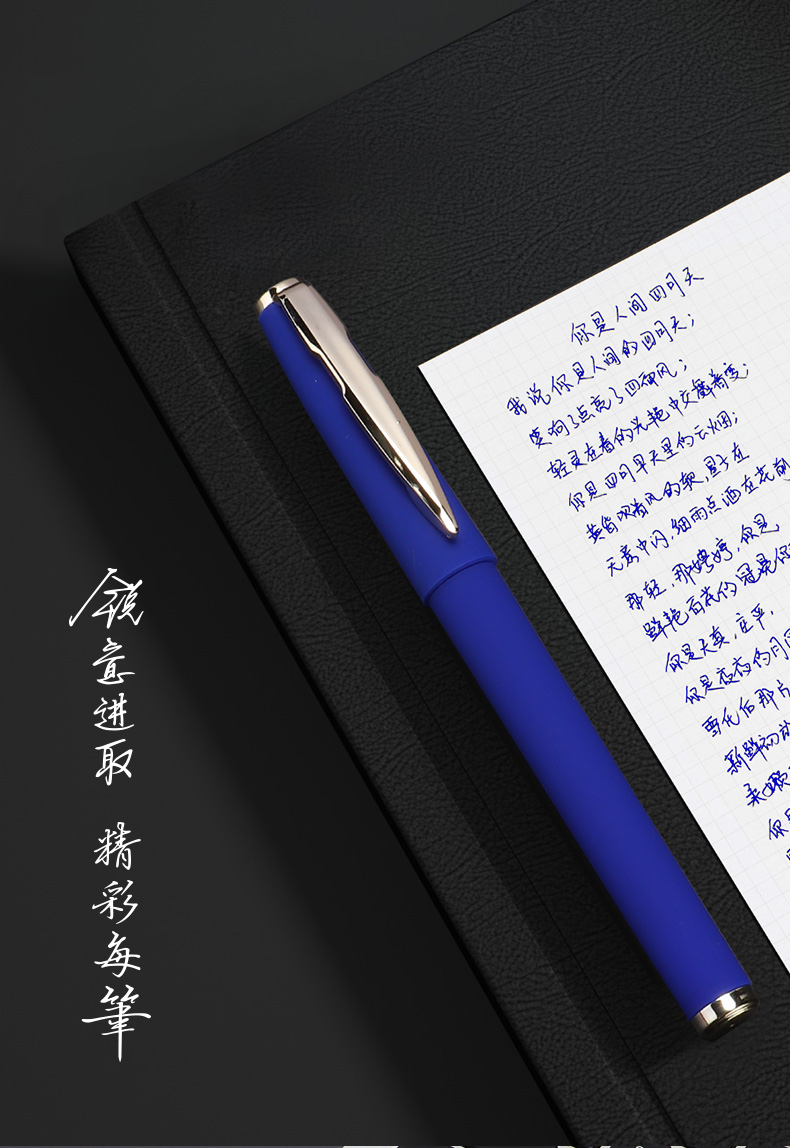 锐意进取 精彩每筆
你是人间四月天
我说你是人间的四月天;
笑响了点亮了四面风;
轻灵在春的光艳中交舞着变;
你是四月早天里的云烟;
黄昏吹着风的软,星子在
无意中闪,细雨点洒在花前
那轻,那娉婷,你是,
鲜艳百花的冠冕你
你是天真,庄严,
你是夜夜的月
雪化后那片
新鲜初放
柔嫩
你是